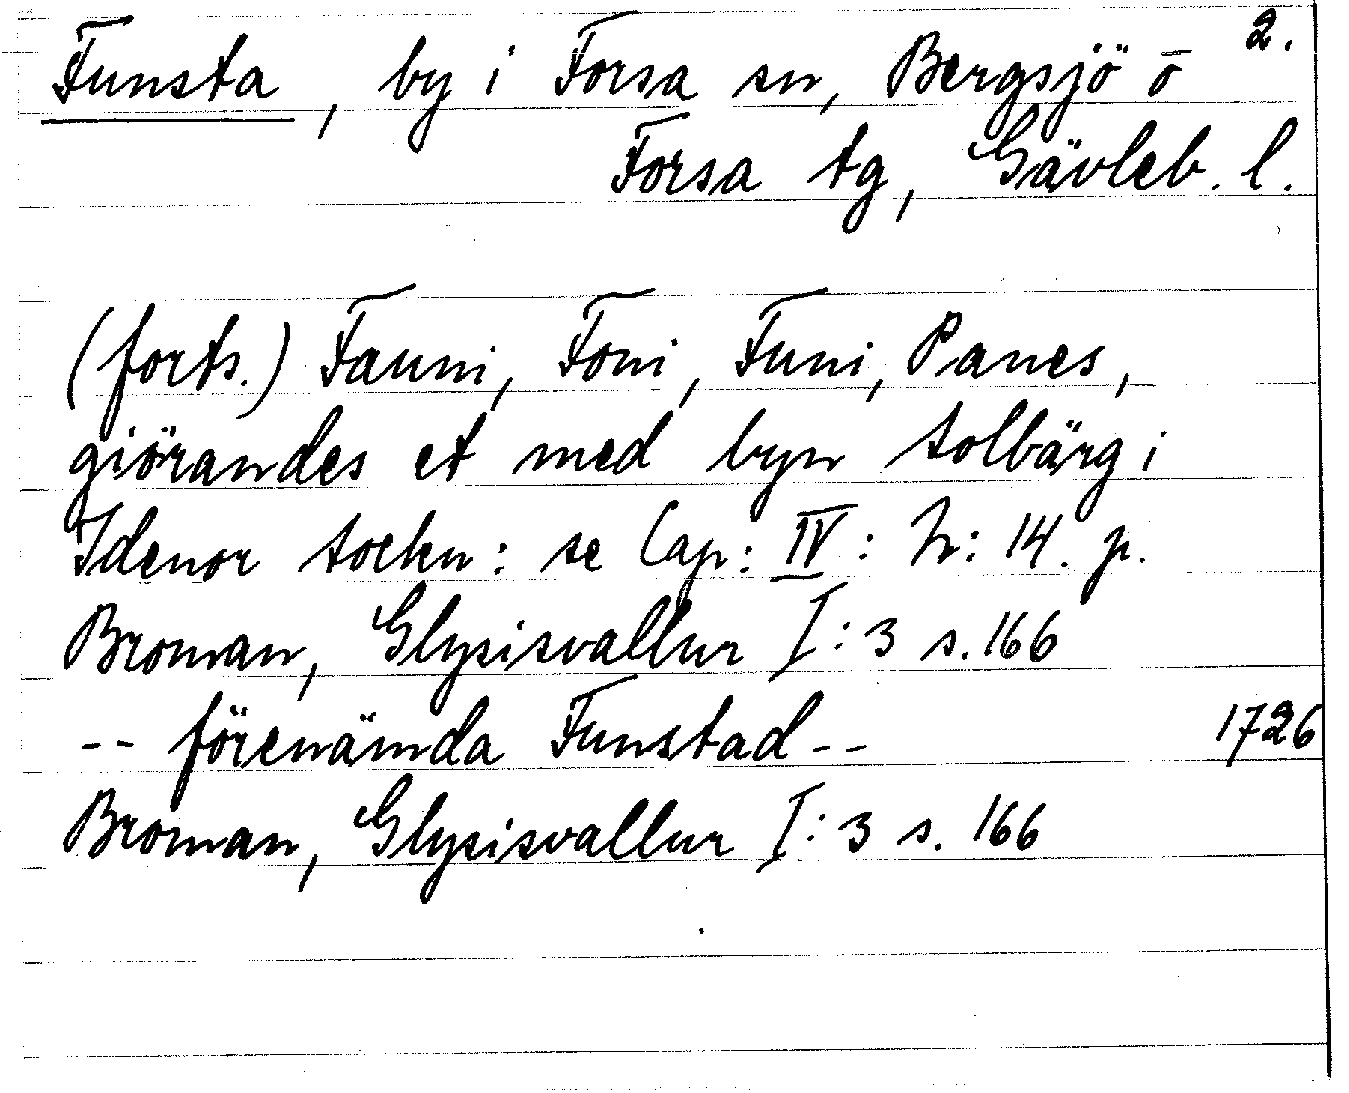 2.
Funsta, by i Forsa sn, Bergsjö o
Forsa tg, Gävleb. l.
(forts.) Fauni, Foni, Funi, Panes,
giörandes et med byn tolbärg i
Idenor sockn: se Cap: IV: N: 14. p.
Broman, Glysisvallur I:3 s. 166
-- förenämda Funstad -- 1726
Broman, Glysisvallur I:3 s. 166